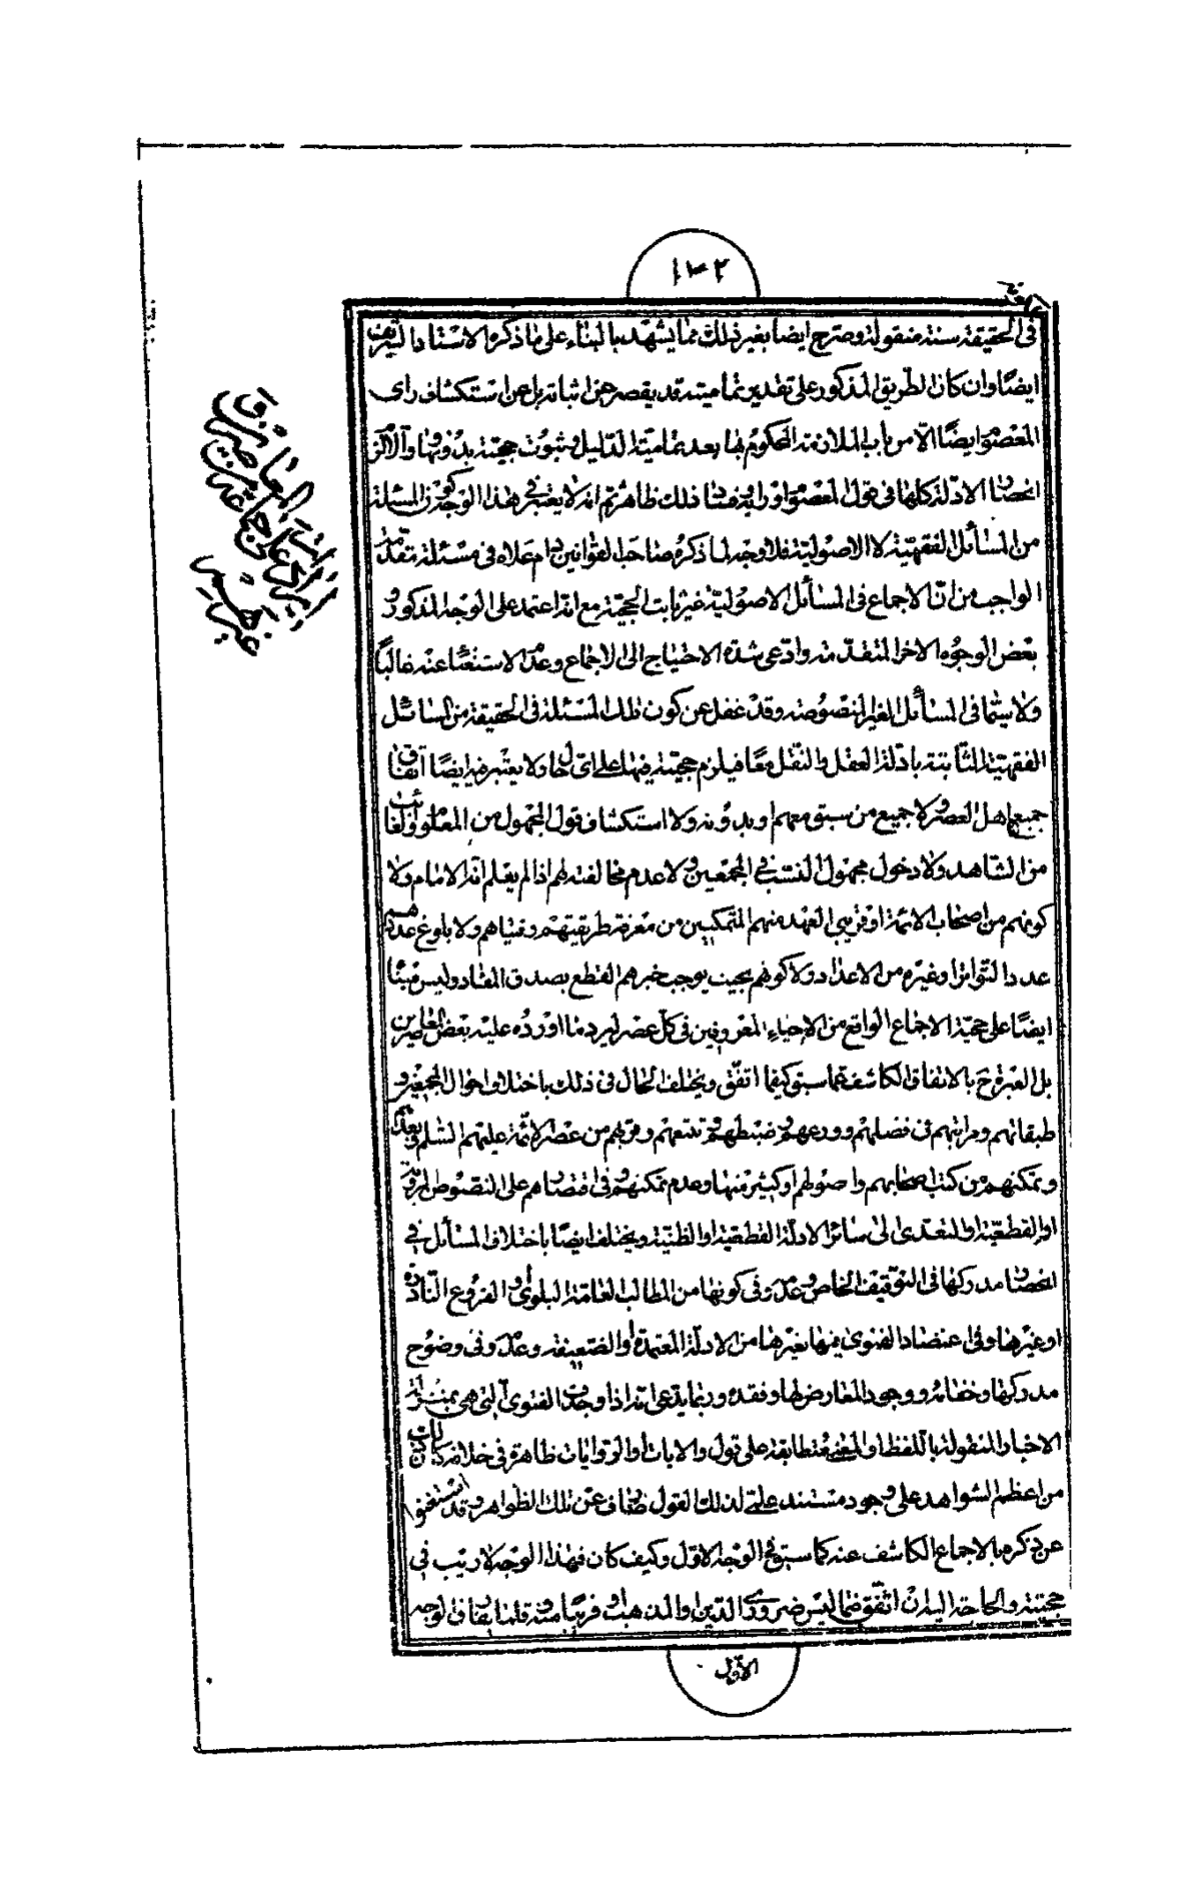 ١٣٢
في الحقيقة سنة منقولة وصرح ايضا بغير ذلك مما يشهد بالبناء على ما ذكره الاستاد الشريف
ايضا وان كان الطريق المذكور على تقدير تماميته قد يقصر عن اثباته بل عن استكشاف راى
المعصوم ايضا الا من باب الملازمة المحكوم بها بعد تمامية الدليل وثبوت حجيته بدونها والا لزم
انحصار الادلة كلها في قول المعصوم او رايه وفساد ذلك ظاهر ثم انه لا يعتبر في هذا الوجه كون المسئلة
من المسائل الفقهية لا الاصولية فلا وجه لما ذكره صاحب القوانين دام علاه في مسئلة مقدمة
الواجب من ان الاجماع في المسائل الاصولية غير ثابت الحجية مع انه اعتمد على الوجه المذكور و
بعض الوجوه الاخر المتقدمة وادعى شدة الاحتياج الى الاجماع وعدم الاستغناء عنه غالبا
ولا سيما في المسائل الغير المنصوصة وقد غفل عن كون تلك المسئلة في الحقيقة من المسائل
الفقهية الثابتة بادلة العقل والنقل معا فيلزم حجيته فيها على اى حال ولا يعتبر فيه ايضا اتفاق
جميع اهل العصر ولا جميع من سبق معهم او بدونه ولا استكشاف قول المجهول من المعلوم والغائب
من الشاهد ولا دخول مجهول النسب في المجمعين ولا عدم مخالفته لهم اذا لم يعلم انه الامام ولا
كونهم من اصحاب الائمة او قريبي العهد منهم المتمكنين من معرفة طريقتهم وفتياهم ولا بلوغ عددهم
عدد التواتر او غيره من الاعداد ولا كونهم بحيث يوجب خبرهم القطع بصدق المفاد وليس مبنيا
ايضا على حجية الاجماع الواقع من الاحياء المعروفين في كل عصر ليرد ما اورده عليه بعض المعاصرين
بل العبرة ح بالاتفاق الكاشف عما سبق كيفما اتفق ويختلف الحال في ذلك باختلاف احوال المجمعين و
طبقاتهم ومراتبهم في فضلهم وورعهم وضبطهم وتتبعهم وقربهم من عصر الائمة عليهم السلم وبعدهم
وتمكنهم من كتب اصحابهم واصولهم او كثير منها وعدم تمكنهم وفي اقتصارهم على النصوص المروية
او القطعية او التعدى الى سائر الادلة القطعية او الظنية ويختلف ايضا باختلاف المسائل في
انحصار مدركها في التوقيف الخاص وعدمه وفى كونها من المطالب العامة البلوى او الفروع النادرة
او غيرها وفى اعتضاد الفتوى فيها بغيرها من الادلة المعتمدة او الضعيفة وعدمه وفى وضوح
مدركها وخفائه ووجود المعارض لها وفقده وربما يدعى انه اذا وجدت الفتوى التى هى بمنزلة
الاخبار المنقولة باللفظ او المعنى متطابقة على قول والايات او الروايات ظاهرة في خلافه كانت
من اعظم الشواهد على وجود مستند علمى لذلك القول صارف عن تلك الظواهر وقد استغنوا
عن ذكره بالاجماع الكاشف عنه كما سبق في الوجه الاول وكيف كان فهذا الوجه لا ريب في
حجيته والحاجة اليه ان اتفق فيما ليس ضرورى الدين او المذهب او قريبا منه قلما يفارق الوجه
الاول